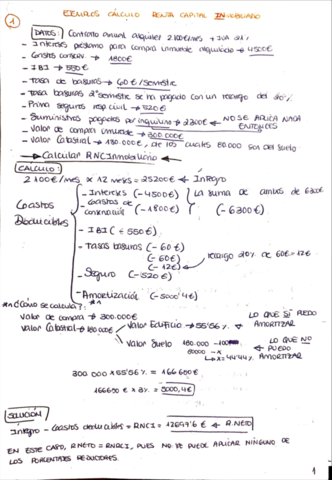 1
EJEMPLOS CÁLCULO RENTA CAPITAL INMOBILIARIO
DATOS: Contrato anual alquiler 2100€/mes + IVA 21%
- Intereses préstamo para compra inmueble alquilado → 4500€
- Gastos conserv. → 1800€
- IBI → 550€
- Tasa de basuras → 60€/semestre
- Tasa basuras 2º semestre se ha pagado con un recargo del 20%
- Prima seguros resp civil → 520€
- Suministros pagados por inquilino → 2300€ ← NO SE APLICA NADA
ENTONCES
- Valor de compra inmueble → 300.000
- Valor Catastral → 180.000€, de los cuales 80.000 son del suelo
→ Calcular RNCInmobiliario ←
CÁLCULO:
2100€/mes x 12 meses = 25200€ ← Íntegro
Gastos
Deducibles
- Intereses (-4500€)
- Gastos de
conservación (-1800€)
La suma de ambos de 6300€
(-6300€)
- IBI (-550€)
- Tasas basuras (-60€)
(-60€)
(-12€) → recargo 20% de 60€ = 12€
- Seguro (-520€)
- Amortización (-5000'4€)
** ¿Cómo se calcula? **
Valor de compra → 300.000€
Valor Catastral → 180.000€
Valor Edificio → 55'56%
LO QUE SÍ PUEDO
AMORTIZAR
Valor Suelo
180.000 - 100
80000 - x
→ x = 44'44%
LO QUE NO
PUEDO
AMORTIZAR
300.000 x 55'56% = 166680€
166680€ x 3% = 5000,4€
SOLUCIÓN
Íntegro - Gastos deducibles = RNCI = 12697'6€ ← R.NETO
EN ESTE CASO, R.NETO = RNRCI, PUES NO SE PUEDE APLICAR NINGUNO DE
LOS PORCENTAJES REDUCTORES.
1